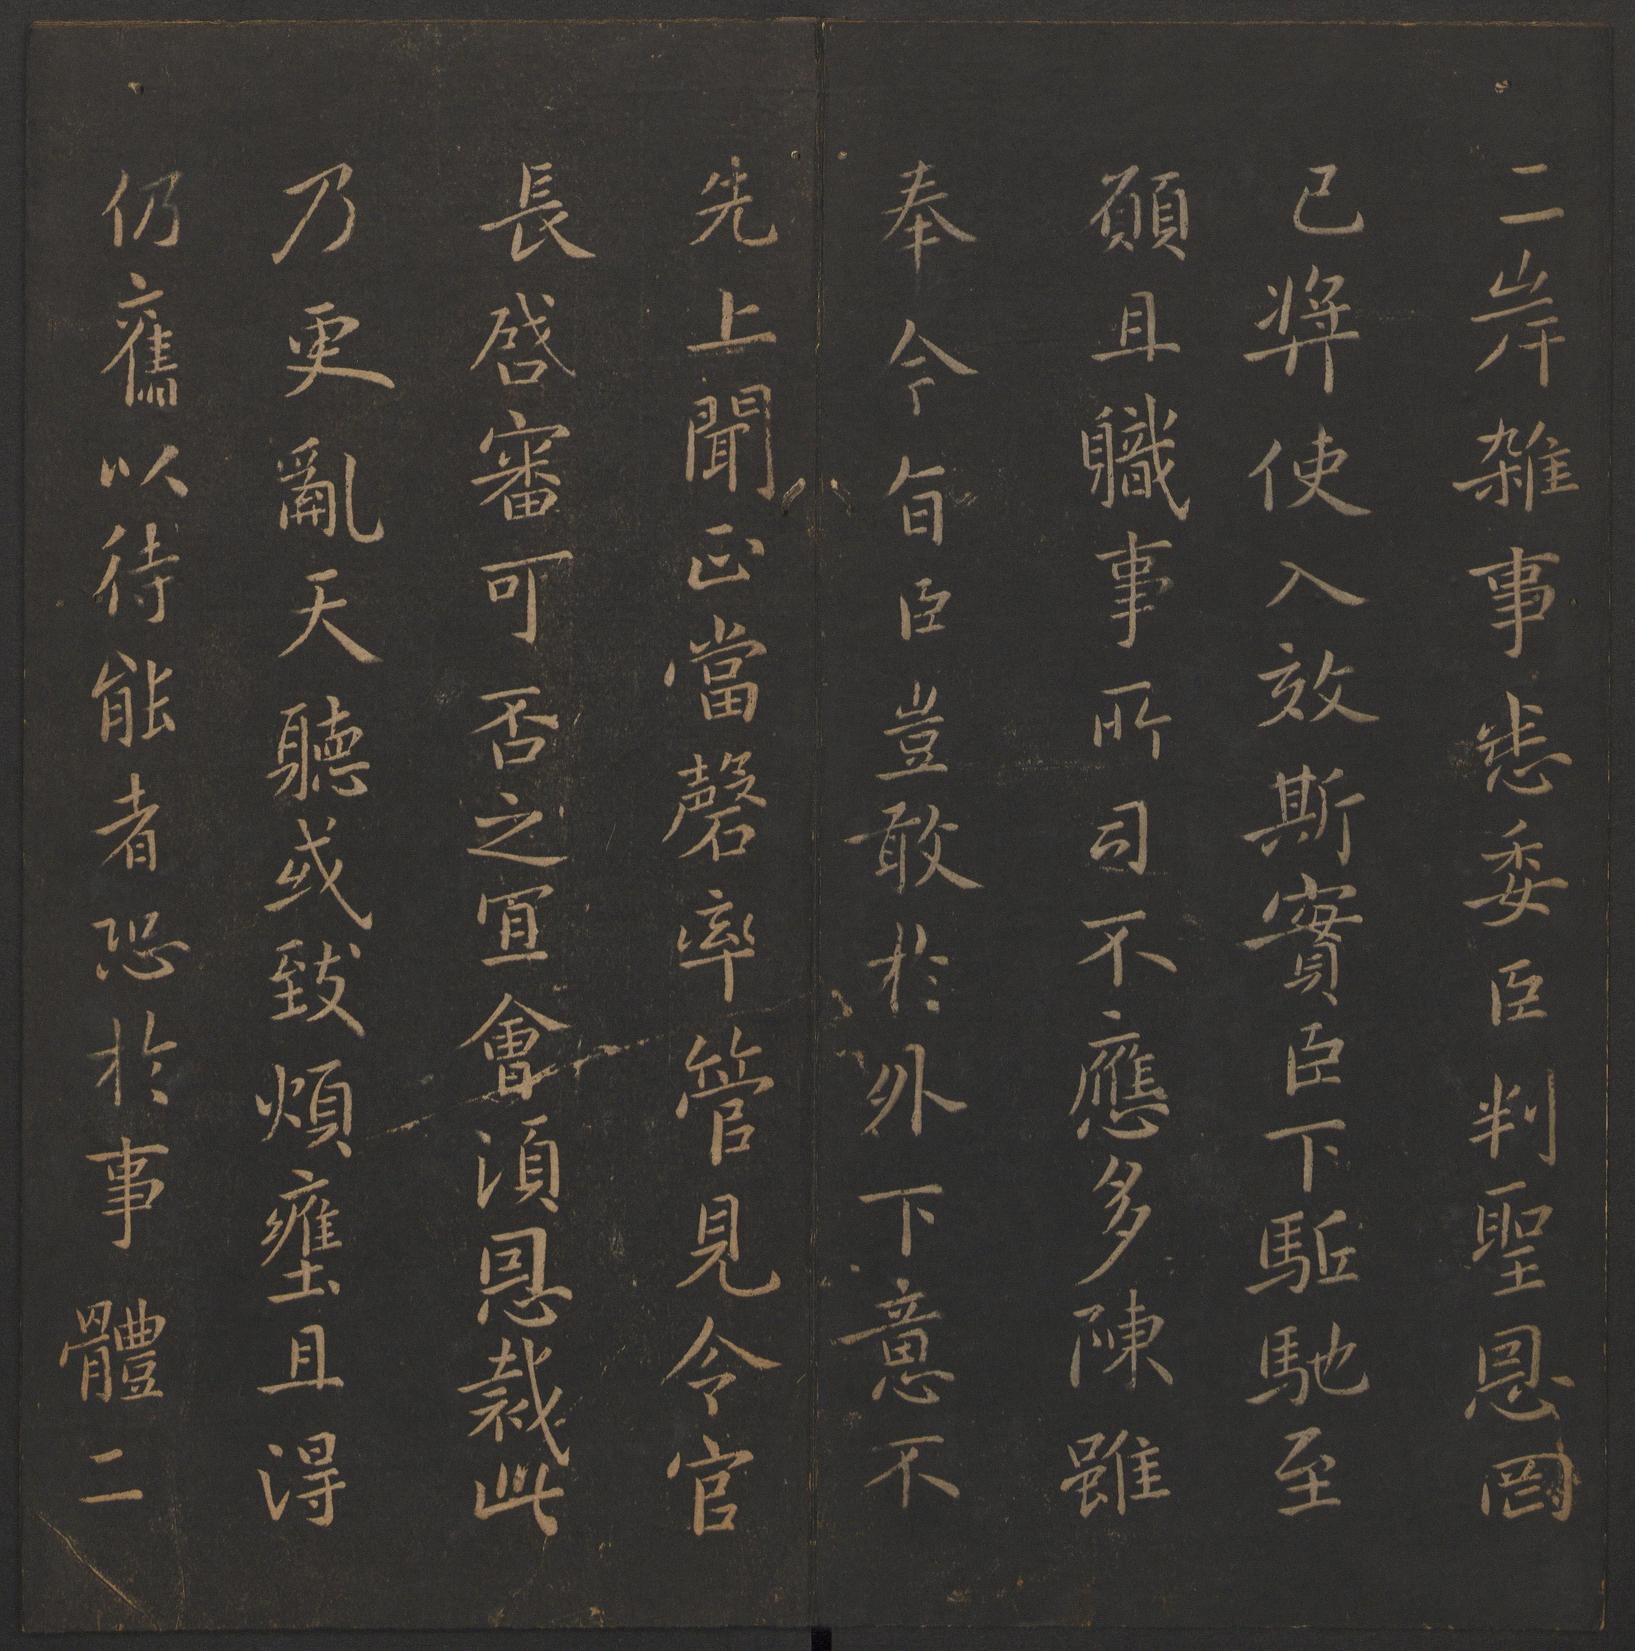 二岸雜事悉委臣判聖恩罔
已獎使入效斯實臣下駈馳至
願且職事所司不應多陳雖
奉令旨臣豈敢於外下意不
先上聞正當罄率管見令官
長啓審可否之宜會湏恩裁此
乃更亂天聽或致煩壅且得
仍舊以待能者恐於事體二